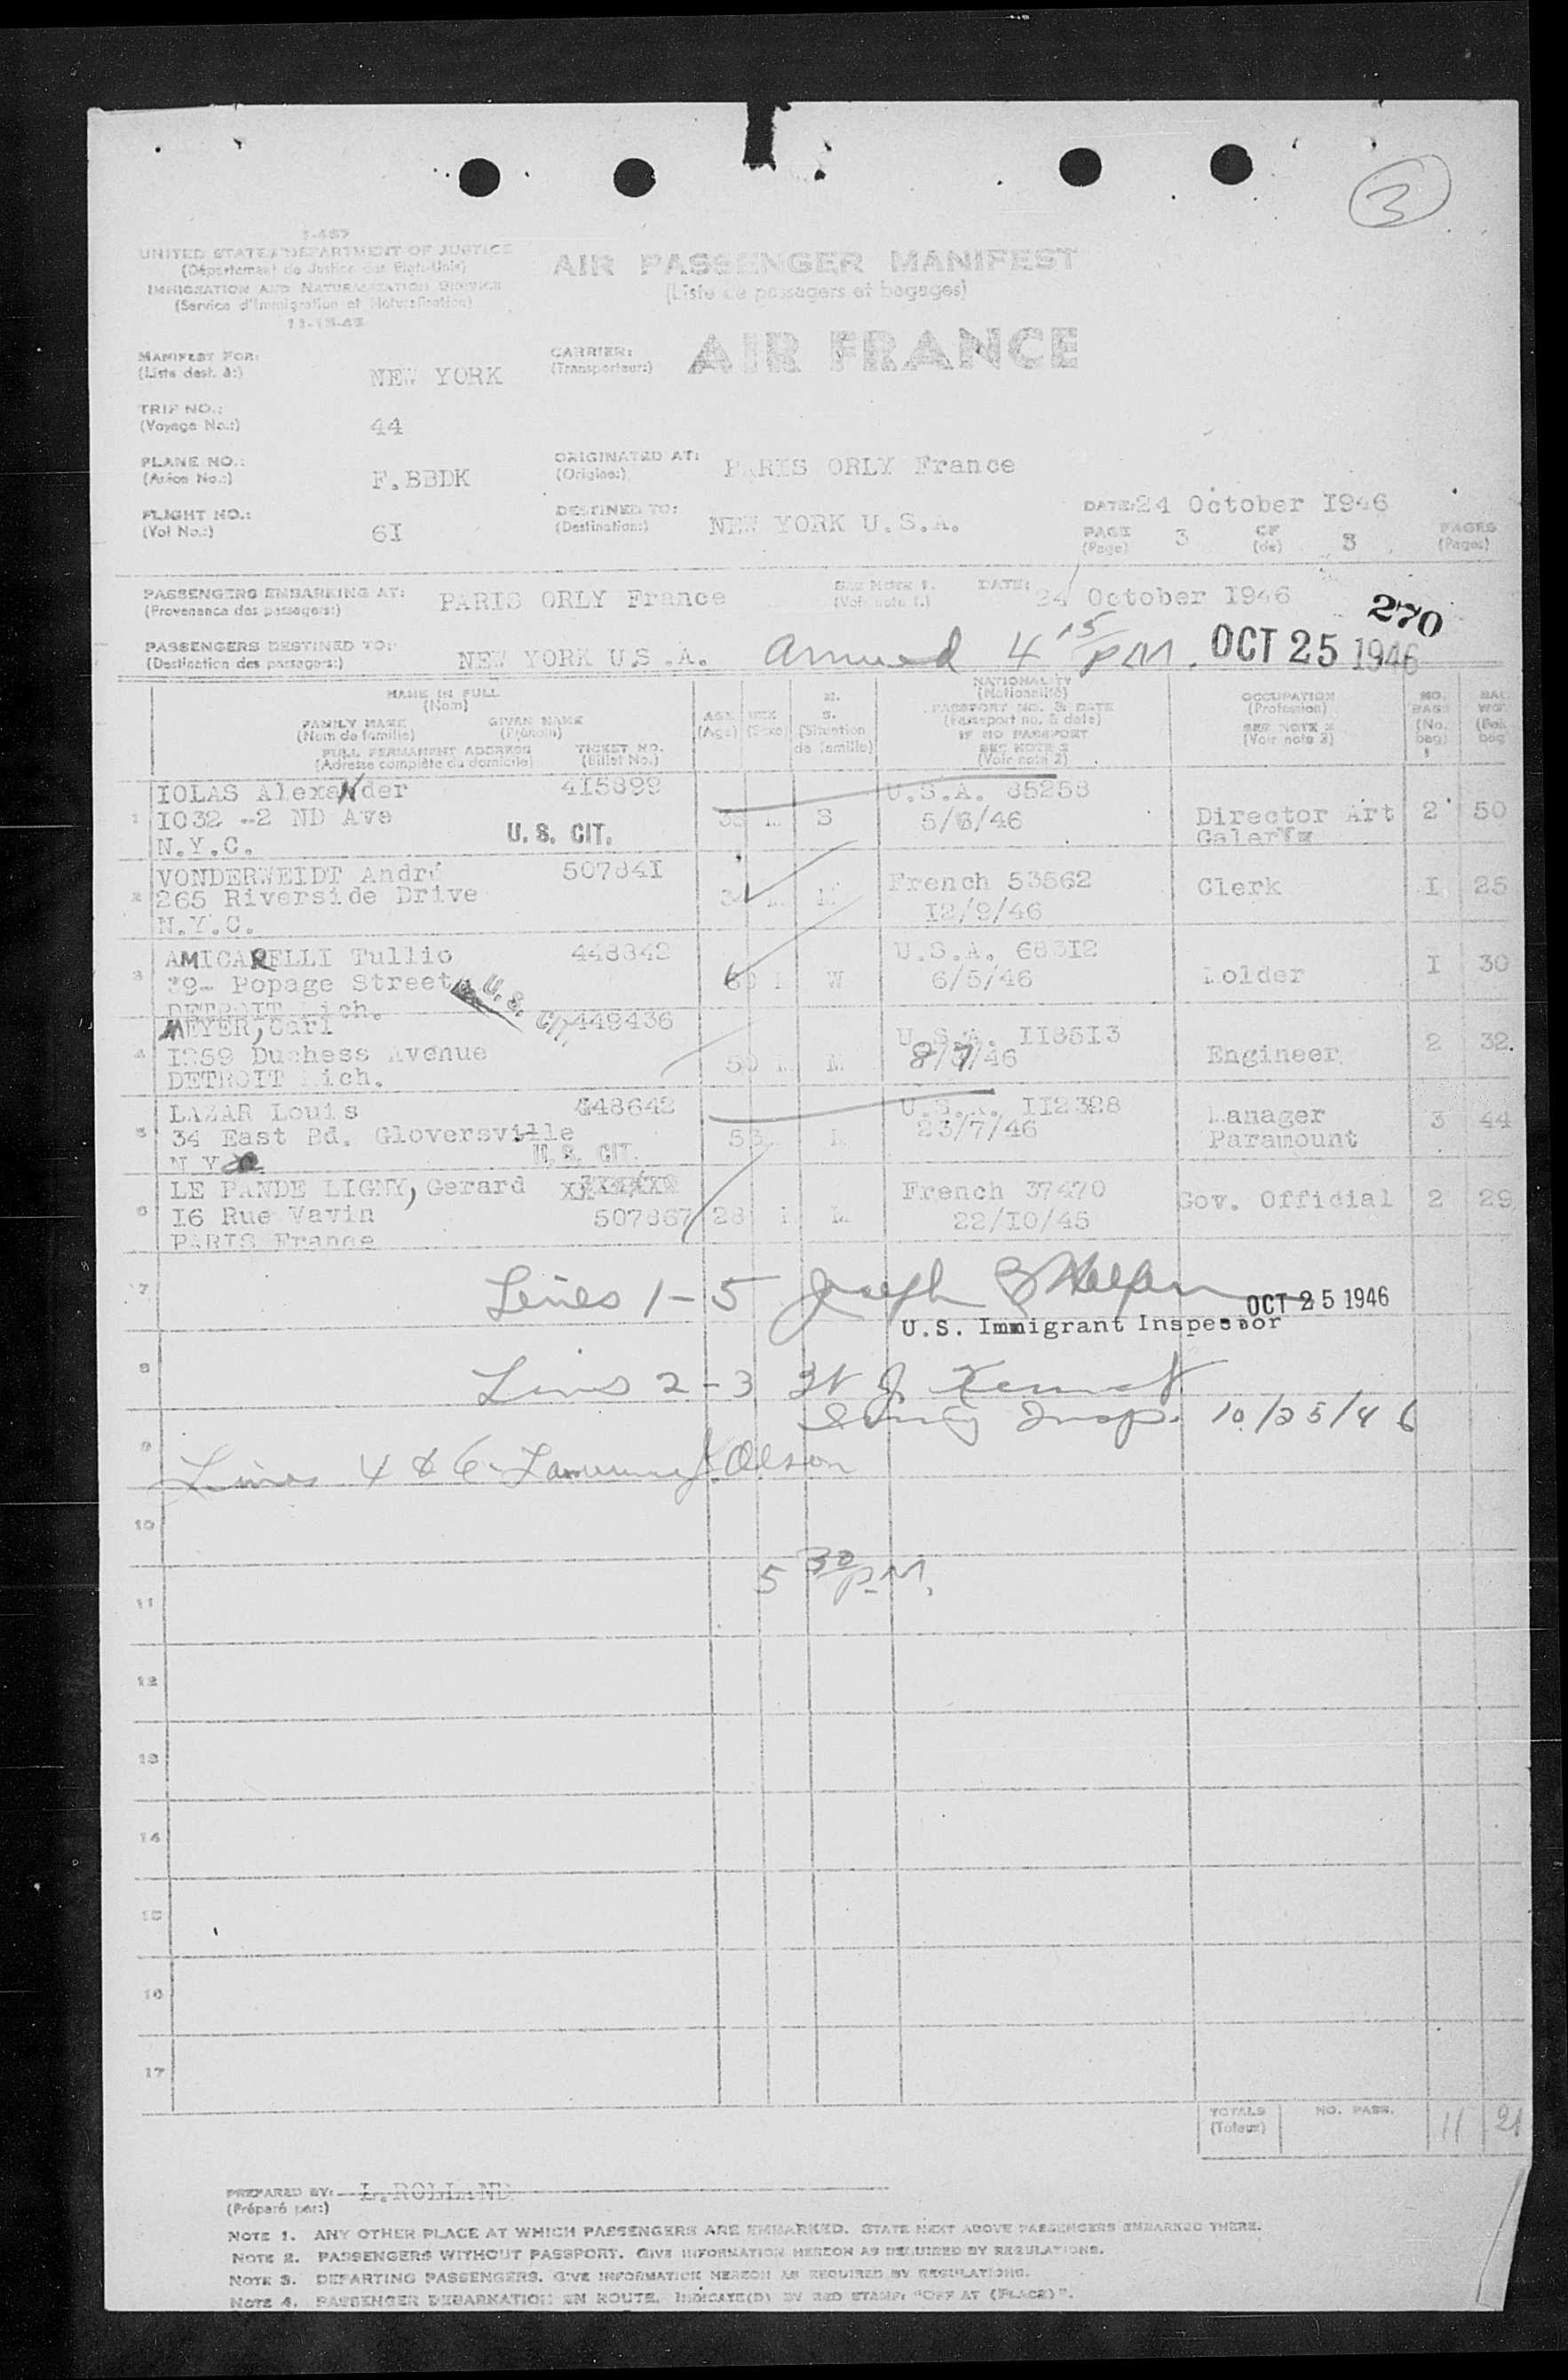 3
I-467
UNITED STATES DEPARTMENT OF JUSTICE
(Département de Justice des Etats-Unis)
IMMIGRATION AND NATURALIZATION SERVICE
(Service d'Immigration et Naturalisation)
11-15-45
AIR PASSENGER MANIFEST
(Liste de passagers et bagages)
MANIFEST FOR: NEW YORK
(Liste dest. à:)
CARRIER: AIR FRANCE
(Transporteur:)
TRIP NO.: 44
(Voyage No.:)
PLANE NO.: F.BBDK
(Avion No.:)
ORIGINATED AT: PARIS ORLY France
(Origine:)
FLIGHT NO.: 6I
(Vol No.:)
DESTINED TO: NEW YORK U.S.A.
(Destination:)
DATE: 24 October I946
PAGE 3 OF 3 PAGES
(Page) (de) (Pages)
PASSENGERS EMBARKING AT: PARIS ORLY France SEE NOTE 1. DATE: 24 October I946
(Provenance des passagers:) (Voir note 1.)
270
PASSENGERS DESTINED TO: NEW YORK U.S.A. Arrived 4 15 PM. OCT 25 1946
(Destination des passagers:)
NAME IN FULL
(Nom)
FAMILY NAME GIVEN NAME
(Nom de famille) (Prénom)
FULL PERMANENT ADDRESS TICKET NO.
(Adresse complète du domicile) (Billet No.)
AGE
(Age)
SEX
(Sexe)
M.
S.
(Situation de famille)
NATIONALITY
(Nationalité)
PASSPORT NO. & DATE
(Passeport no. & date)
IF NO PASSPORT
SEE NOTE 2
(Voir note 2)
OCCUPATION
(Profession)
SEE NOTE 3
(Voir note 3)
NO. BAGS
(No. bag)
1 IOLAS Alexander 4I5899 S U.S.A. 85258 Director Art 2 50
I032 -2 ND Ave U. S. CIT. 5/6/46
N.Y.C.
2 VONDERWEIDT André 50784I 34 M French 53562 Clerk I 25
265 Riverside Drive I2/9/46
N.Y.C.
3 AMICARELLI Tullio 448842 W U.S.A. 683I2 I 30
39- Popage Street U. S. CIT. 6/5/46
DETROIT Mich.
4 MEYER, Carl 449436 50 M U.S.A. II85I3 Engineer 2 32.
I259 Duchess Avenue 8/7/46
DETROIT Mich.
5 LAZAR Louis 448642 U.S.A. II2328 Manager 3 44
34 East Bd. Gloversville 23/7/46 Paramount
N.Y. U. S. CIT.
6 LE PANDE LIGNY, Gerard French 37470 Gov. Official 2 29
I6 Rue Vavin 507867 28 22/I0/45
PARIS France
7
Lines 1-5 Joseph
OCT 25 1946
U.S. Immigrant Inspector
8
Lines 2-3
Insp. 10/25/46
9
Lines 4 & 6 Olson
10
5 30 P.M.
11
12
13
14
15
16
17
TOTALS NO. PASS. 11
(Totaux)
PREPARED BY: L.ROLLAND
(Préparé par:)
NOTE 1. ANY OTHER PLACE AT WHICH PASSENGERS ARE EMBARKED. STATE NEXT ABOVE PASSENGERS EMBARKED THERE.
NOTE 2. PASSENGERS WITHOUT PASSPORT. GIVE INFORMATION HEREON AS REQUIRED BY REGULATIONS.
NOTE 3. DEPARTING PASSENGERS. GIVE INFORMATION HEREON AS REQUIRED BY REGULATIONS.
NOTE 4. PASSENGER DEBARKATION EN ROUTE. INDICATE(D) BY RED STAMP: "OFF AT (PLACE)".